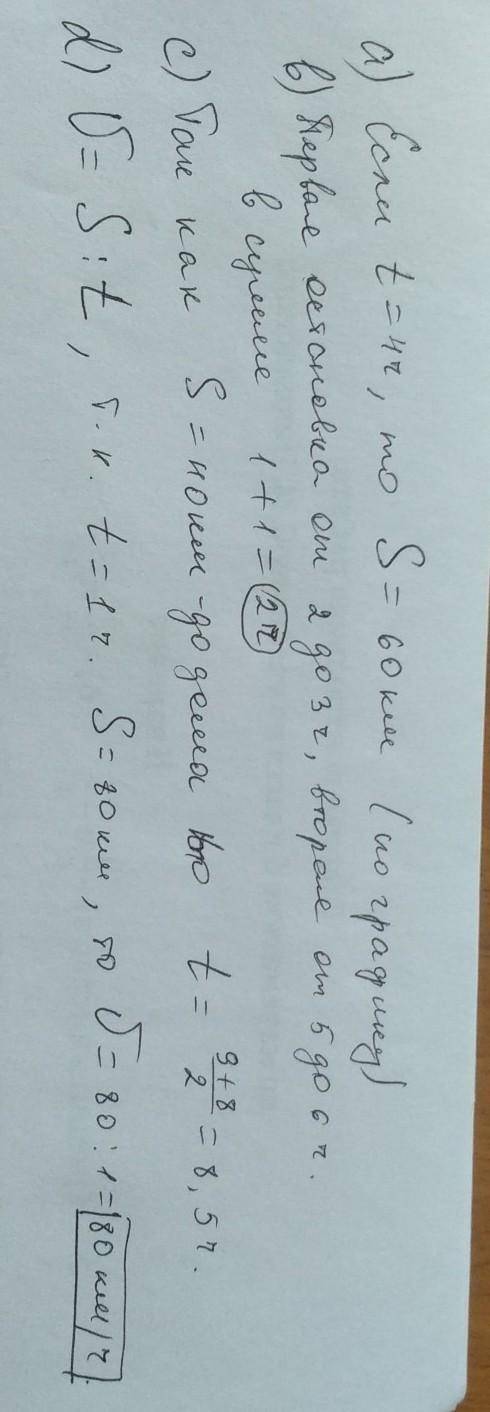 a) Если t = 4ч, то S = 60км (по графику)
b) Первая остановка от 2 до 3ч, вторая от 5 до 6ч.
в сумме 1 + 1 = 2ч
c) Так как S = 40км - до дома то t = 9+8/2 = 8,5ч.
d) V = S : t, т.к. t = 1ч. S = 80км, то V = 80 : 1 = 80 км/ч.